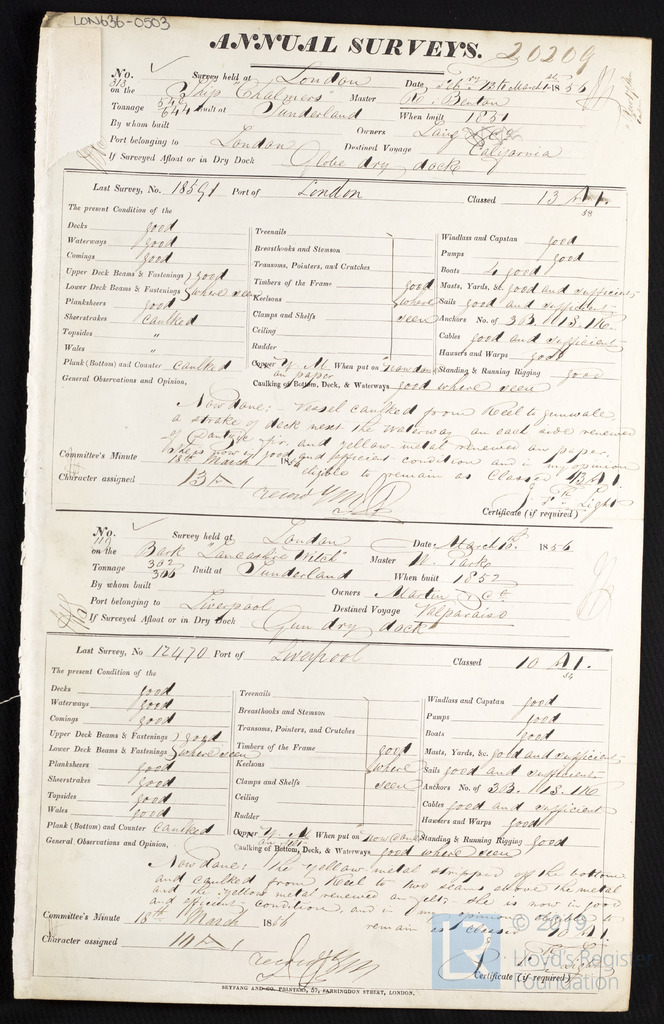 LON636-0503
ANNUAL SURVEYS. 20209
No. 313 Survey held at London Date 1856
on the Ship "Chalmers" Master Benton
Tonnage 644 Built at Sunderland When built 1851
By whom built Owners Laing & Co
Port belonging to London Destined Voyage California
If Surveyed Afloat or in Dry Dock Globe dry dock
Last Survey, No. 18591 Port of London Classed 13 A 1.
58
The present Condition of the
Decks good
Waterways good
Comings good
Upper Deck Beams & Fastenings } good
Lower Deck Beams & Fastenings } where seen
Planksheers good
Sheerstrakes Caulked
Topsides "
Wales "
Plank (Bottom) and Counter Caulked
General Observations and Opinion,
Treenails
Breasthooks and Stemson
Transoms, Pointers, and Crutches
Timbers of the Frame good
Keelsons where
Clamps and Shelfs seen
Ceiling
Rudder
Copper Y.M. on paper When put on now done
Caulking of Bottom, Deck, & Waterways good where seen
Windlass and Capstan good
Pumps good
Boats 4 good
Masts, Yards, &c. good and sufficient
Sails good and sufficient
Anchors No. of 3B. 1S. 1K.
Cables good and sufficient
Hausers and Warps good
Standing & Running Rigging good
Now done: Vessel caulked from Keel to gunwale,
a strake of deck next the waterway on each side renewed
of Dantzic fir, and yellow metal renewed on paper.
She is now in good and efficient condition and in my opinion
Committee's Minute 18th March 1856 eligible to remain as Classed 13 A 1
Character assigned 13 A 1
record YM Light
Certificate (if required)
No. 119 Survey held at London Date March 1856
on the Bark "Lancashire Witch" Master W. Parke
Tonnage 302 Built at Sunderland When built 1852
By whom built Owners Martin & Co
Port belonging to Liverpool Destined Voyage Valparaiso
If Surveyed Afloat or in Dry Dock Gun dry dock
Last Survey, No. 12470 Port of Liverpool Classed 10 A 1.
54
The present Condition of the
Decks good
Waterways good
Comings good
Upper Deck Beams & Fastenings } good
Lower Deck Beams & Fastenings } where seen
Planksheers good
Sheerstrakes good
Topsides good
Wales good
Plank (Bottom) and Counter Caulked
General Observations and Opinion,
Treenails
Breasthooks and Stemson
Transoms, Pointers, and Crutches
Timbers of the Frame good
Keelsons where
Clamps and Shelfs seen
Ceiling
Rudder
Copper Y.M. on felt When put on now done
Caulking of Bottom, Deck, & Waterways good where seen
Windlass and Capstan good
Pumps good
Boats good
Masts, Yards, &c. good and sufficient
Sails good and sufficient
Anchors No. of 3B. 1S. 1K.
Cables good and sufficient
Hawsers and Warps good
Standing & Running Rigging good
Now done: The yellow metal stripped off the bottom
and caulked from Keel to two seams above the metal
and the yellow metal renewed on felt. She is now in good
and efficient condition, and in my opinion eligible to
Committee's Minute 18th March 1856 remain as Classed 10 A 1
Character assigned 10 A 1
record YM
Certificate (if required)
SEYFANG AND CO. PRINTERS, 57, FARRINGDON STREET, LONDON.
LR © 2019
Lloyd's Register
Foundation